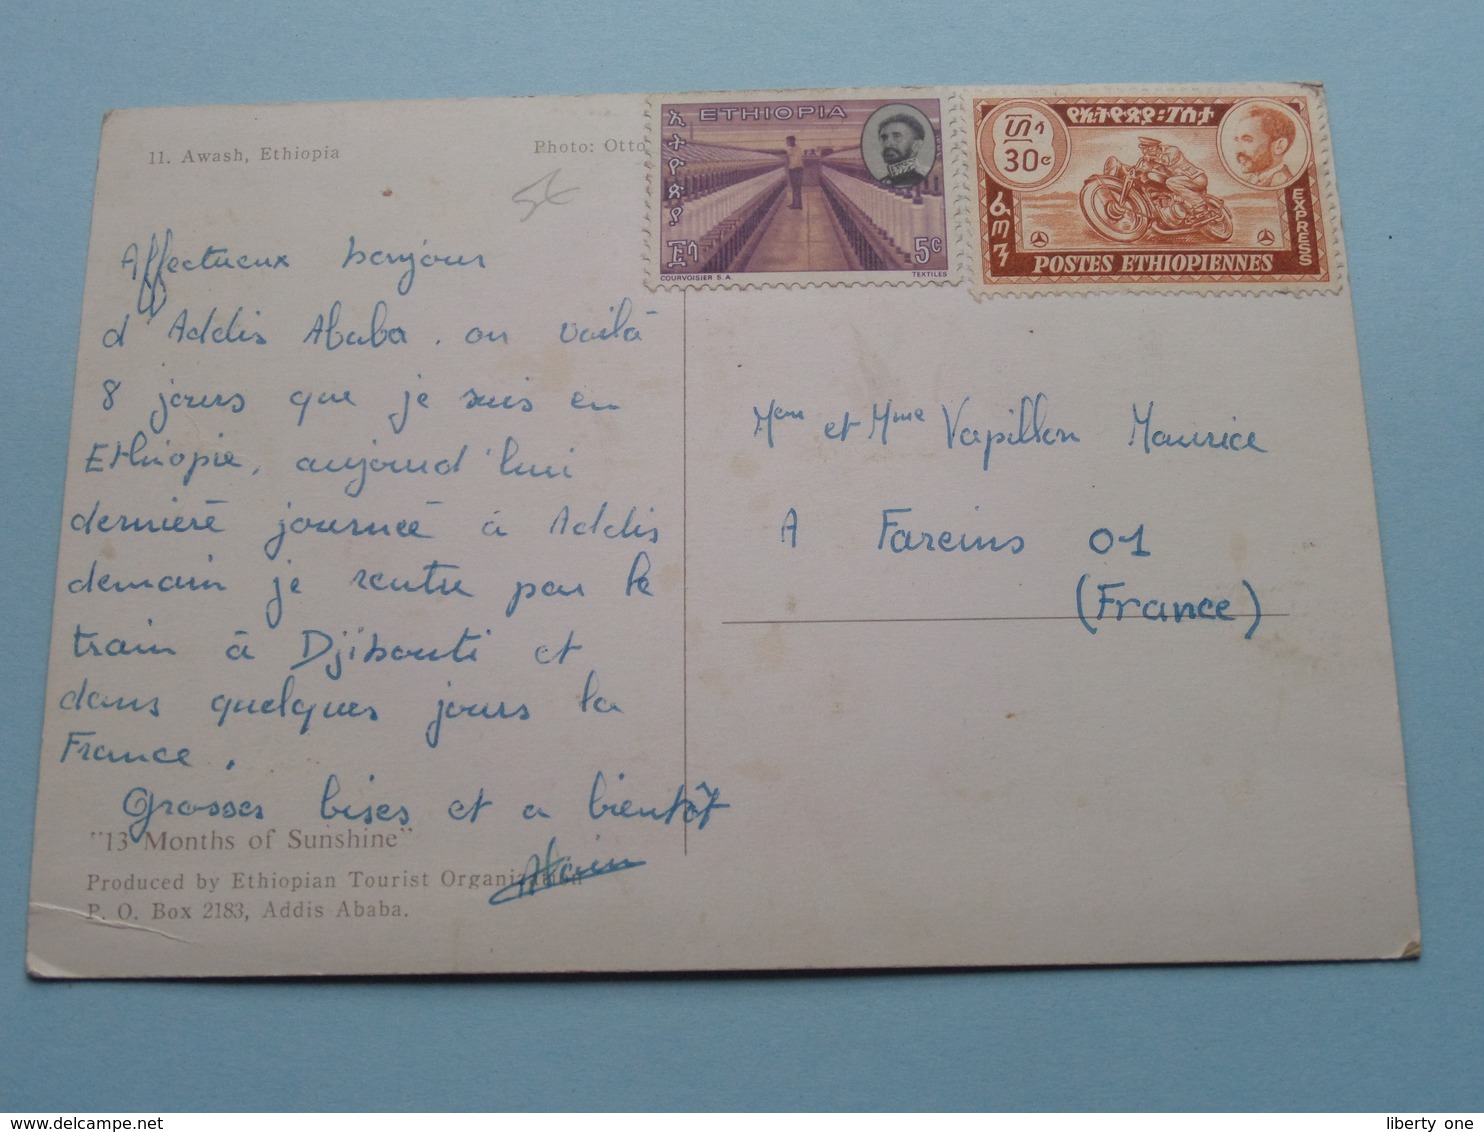 11. Awash, Ethiopia
Photo: Otto
5€
Affectueux bonjour
d'Addis Ababa. ou voilà
8 jours que je suis en
Ethiopie, aujourd'hui
dernière journée à Addis
demain je rentre par le
train à Djibouti et
dans quelques jours la
France.
Grosses bises et a bientôt
Alain
"13 Months of Sunshine"
Produced by Ethiopian Tourist Organization
P. O. Box 2183, Addis Ababa.
ETHIOPIA
ኢትዮጵያ
፭ሳ
5c
COURVOISIER S.A.
TEXTILES
የኢትዮጵያ፡ፖስታ
፴ሳ
30c
ፈጣን
EXPRESS
POSTES ETHIOPIENNES
et Mme Vapillon Maurice
A Fareins 01
(France)
http://www.delcampe.net
liberty one